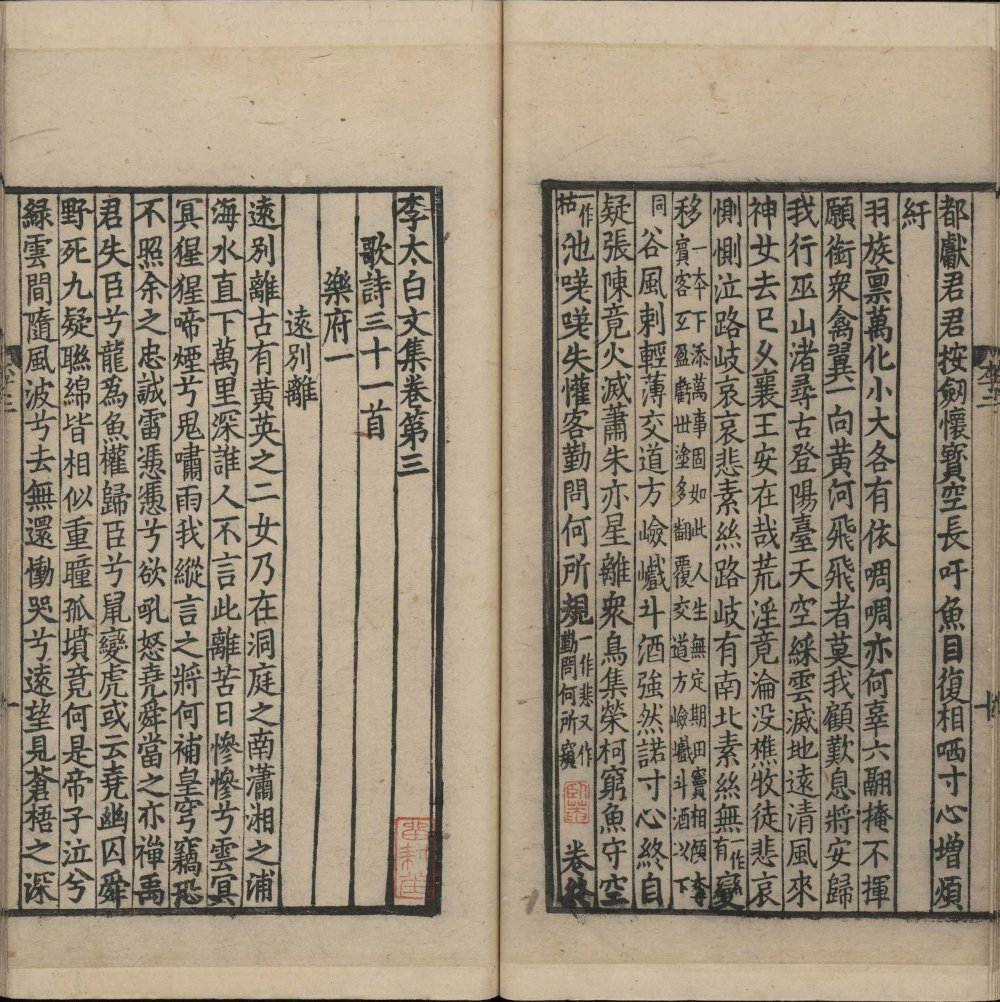 都獻君君按劒懷寳空長吁魚目復相哂寸心増煩
紆
羽族禀萬化小大各有依啁啁亦何辜六翮掩不揮
願銜衆禽翼一向黄河飛飛者莫我顧歎息將安歸
我行巫山渚尋古登陽臺天空綵雲滅地逺清風來
神女去巳乆襄王安在哉荒淫竟淪没樵牧徒悲哀
惻惻泣路歧哀哀悲素絲路歧有南北素絲無一作有變
移一本下添萬事固如此人生無定期田竇相傾奪
賓客互盈虧世塗多翻覆交道方嶮巇斗酒以下
同谷風刺輕薄交道方嶮巇斗酒強然諾寸心終自
疑張陳竟火滅蕭朱亦星離衆鳥集榮柯窮魚守空
一作枯池嘆嘆失懽客勤問何所規一作悲又作勤問何所窺 卷終
李太白文集卷第三
歌詩三十一首
樂府一
逺别離
逺别離古有黄英之二女乃在洞庭之南瀟湘之浦
海水直下萬里深誰人不言此離苦日慘慘兮雲冥
冥猩猩啼煙兮鬼嘯雨我縱言之將何補皇穹竊恐
不照余之忠誠雷慿慿兮欲吼怒堯舜當之亦禪禹
君失臣兮龍爲魚權歸臣兮鼠變虎或云堯幽囚舜
野死九疑聯綿皆相似重瞳孤墳竟何是帝子泣兮
緑雲間隨風波兮去無還慟哭兮逺望見蒼梧之深